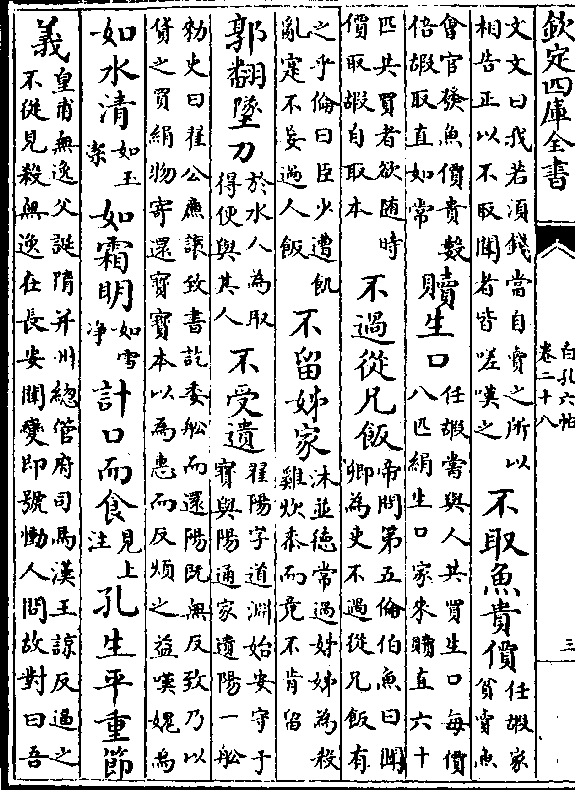 欽定四庫全書
白孔六帖
卷二十八
三
文文曰我若須錢當自賣之所以
相告正以不取聞者皆嗟嘆之
不取魚貴價
任嘏家
貧賣魚
會官發魚價貴數
倍嘏取直如常
贖生口
任嘏嘗與人共買生口每價
八匹絹生口家來贖直六十
匹共買者欲随時
價取嘏自取本
不過從兄飯
帝問第五倫伯魚曰聞
卿為吏不過從兄飯有
之乎倫曰臣少遭飢
亂寔不妄過人飯
不留姊家
沐並徳常過姊姊為殺
雞炊黍而竟不肯留
郭翻墜刀
於水人為取
得便與其人
不受遺
翟陽字道淵始安守于
寳與陽通家遺陽一舩
勑吏曰翟公㢘讓致書訖委舩而還陽既無反致乃以
貸之買絹物寄還寳寳本以為惠而反煩之益嘆媿焉
如水清
如玉
潔
如霜明
如雪
净
計口而食
見上
注
孔生平重節
義
皇甫無逸父誕隋并州總管府司馬漢王諒反逼之
不從見殺無逸在長安聞變即號慟人問故對曰吾